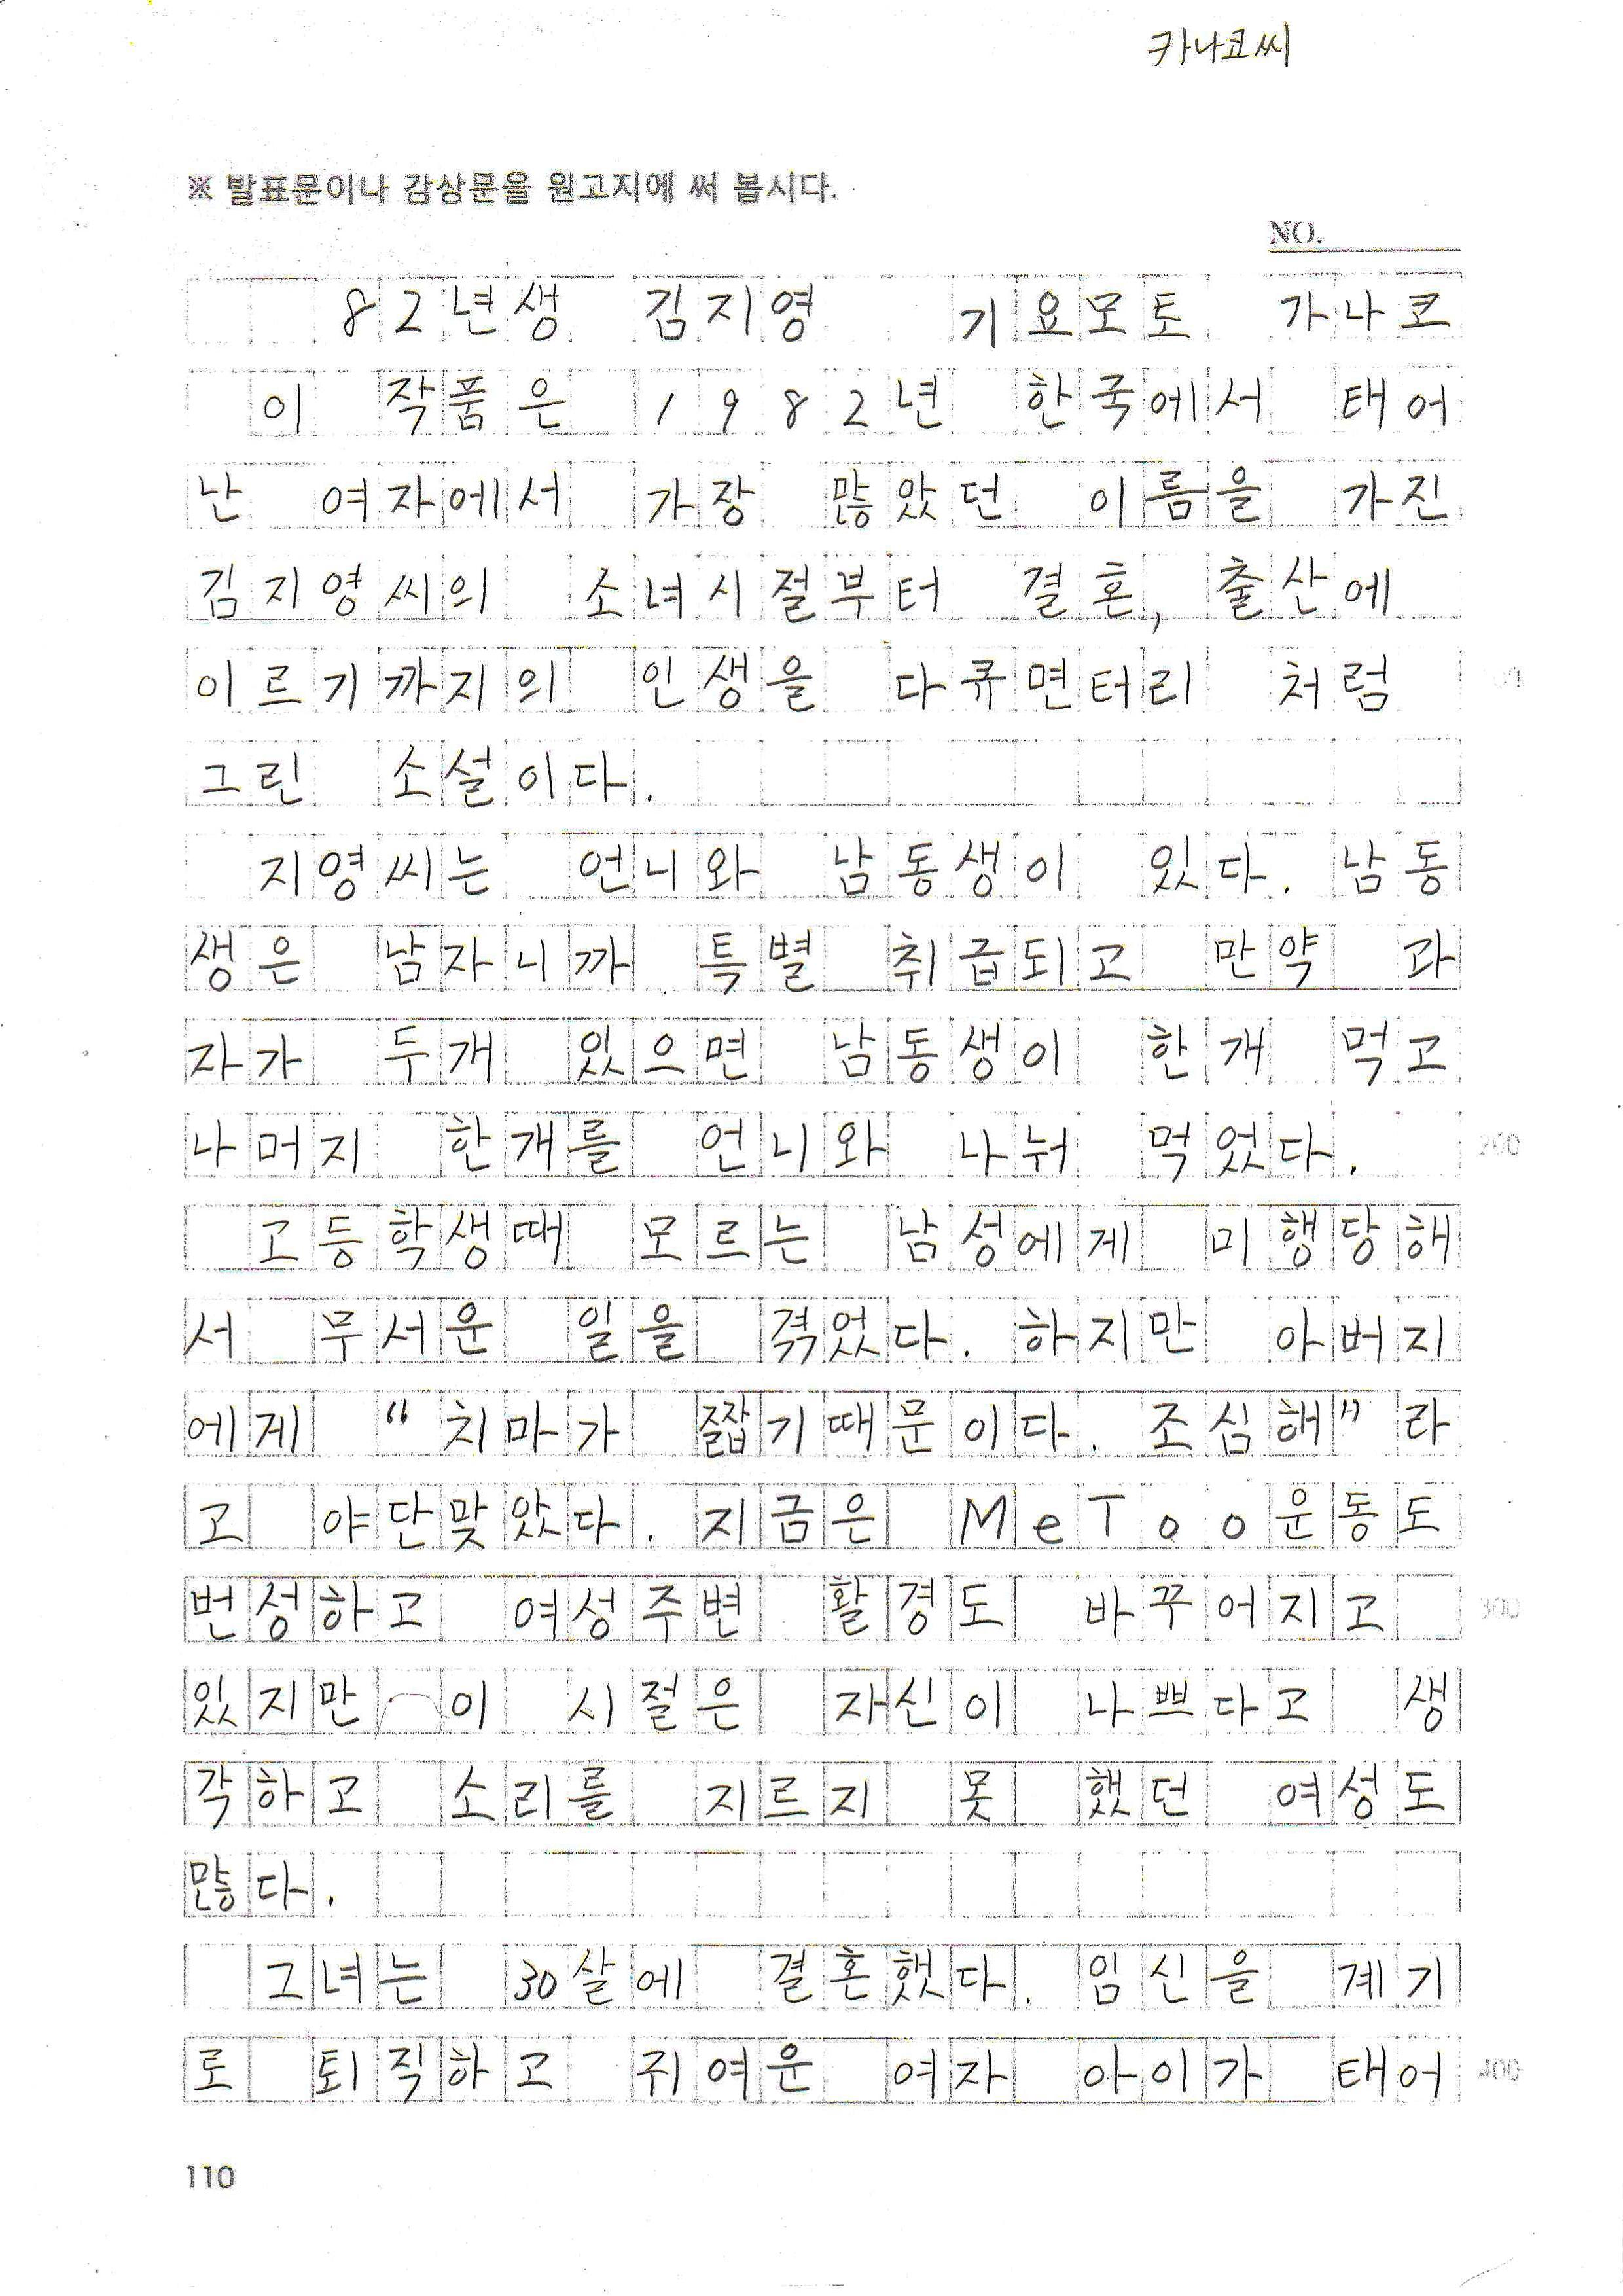 카나코씨
※ 발표문이나 감상문을 원고지에 써 봅시다.
NO.
82년생 김지영 기요모토 가나코
이 작품은 1982년 한국에서 태어
난 여자에서 가장 많았던 이름을 가진
김지영씨의 소녀시절부터 결혼, 출산에
이르기까지의 인생을 다큐면터리 처럼
그린 소설이다.
지영씨는 언니와 남동생이 있다. 남동
생은 남자니까 특별 취급되고 만약 과
자가 두개 있으면 남동생이 한개 먹고
나머지 한개를 언니와 나눠 먹었다.
200
고등학생때 모르는 남성에게 미행당해
서 무서운 일을 겪었다. 하지만 아버지
에게 "치마가 짧기때문이다. 조심해" 라
고 야단맞았다. 지금은 MeToo운동도
번성하고 여성주변 활경도 바꾸어지고
300
있지만 이 시절은 자신이 나쁘다고 생
각하고 소리를 지르지 못 했던 여성도
많다.
그녀는 30살에 결혼했다. 임신을 계기
로 퇴직하고 귀여운 여자 아이가 태어
400
110